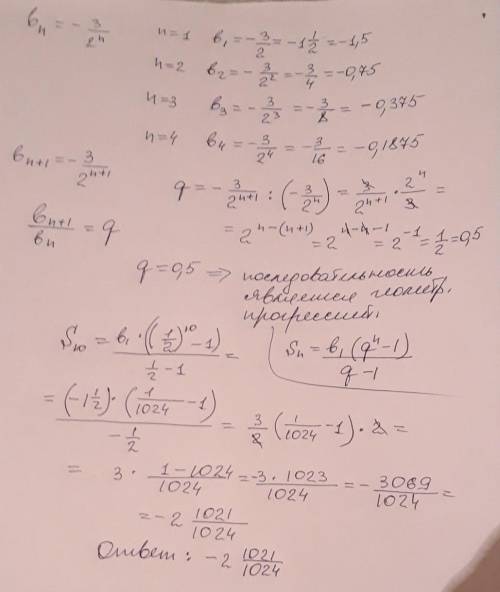 bₙ = - 3/2ⁿ   n=1   b₁ = - 3/2 = -1 1/2 = -1,5
n=2   b₂ = - 3/2² = - 3/4 = -0,75
n=3   b₃ = - 3/2³ = - 3/8 = -0,375
n=4   b₄ = - 3/2⁴ = - 3/16 = -0,1875
bₙ₊₁ = - 3/2ⁿ⁺¹
q = - 3/2ⁿ⁺¹ : (- 3/2ⁿ) = 3/2ⁿ⁺¹ · 2ⁿ/3 =
bₙ₊₁/bₙ = q   = 2ⁿ⁻⁽ⁿ⁺¹⁾ = 2ⁿ⁻ⁿ⁻¹ = 2⁻¹ = 1/2 = 0,5
q = 0,5 => последовательность
является геометр.
прогрессией.
S₁₀ = b₁ · ((1/2)¹⁰ - 1) / (1/2 - 1) =   Sₙ = b₁(qⁿ - 1) / (q - 1)
= (-1 1/2) · (1/1024 - 1) / (- 1/2) = 3/2 (1/1024 - 1) · 2 =
= 3 · (1 - 1024)/1024 = -3 · 1023/1024 = - 3069/1024 =
= -2 1021/1024
Ответ: -2 1021/1024